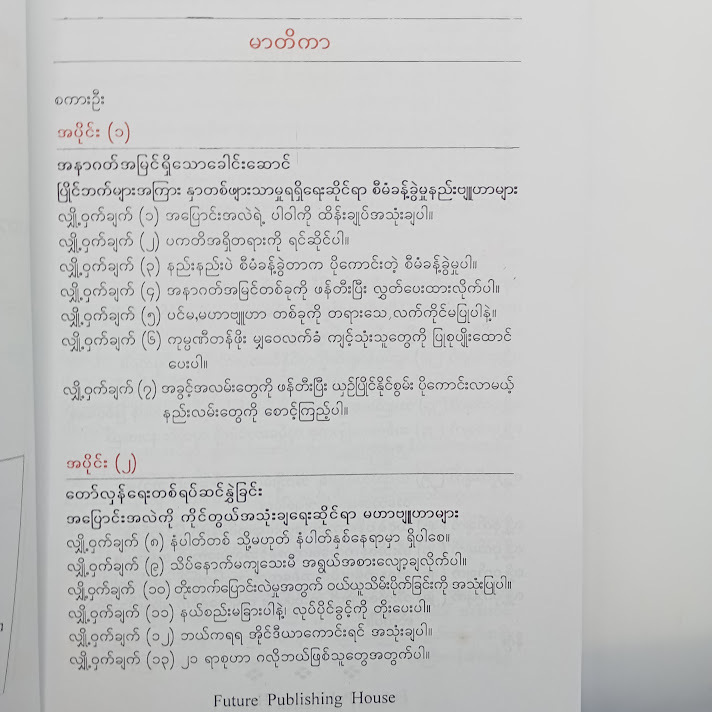 မာတိကာ
စကားဦး
အပိုင်း (၁)
အနာဂတ်အမြင်ရှိသောခေါင်းဆောင်
ပြိုင်ဘက်များအကြား နှာတစ်ဖျားသာမှုရရှိရေးဆိုင်ရာ စီမံခန့်ခွဲမှုနည်းဗျူဟာများ
လျှို့ဝှက်ချက် (၁) အပြောင်းအလဲရဲ့ ပါဝါကို ထိန်းချုပ်အသုံးချပါ။
လျှို့ဝှက်ချက် (၂) ပကတိအရှိတရားကို ရင်ဆိုင်ပါ။
လျှို့ဝှက်ချက် (၃) နည်းနည်းပဲ စီမံခန့်ခွဲတာက ပိုကောင်းတဲ့ စီမံခန့်ခွဲမှုပါ။
လျှို့ဝှက်ချက် (၄) အနာဂတ်အမြင်တစ်ခုကို ဖန်တီးပြီး လွှတ်ပေးထားလိုက်ပါ။
လျှို့ဝှက်ချက် (၅) ပင်မ,မဟာဗျူဟာ တစ်ခုကို တရားသေ,လက်ကိုင်မပြုပါနဲ့။
လျှို့ဝှက်ချက် (၆) ကုမ္ပဏီတန်ဖိုး မျှဝေလက်ခံ ကျင့်သုံးသူတွေကို ပြုစုပျိုးထောင်
ပေးပါ။
လျှို့ဝှက်ချက် (၇) အခွင့်အလမ်းတွေကို ဖန်တီးပြီး ယှဉ်ပြိုင်နိုင်စွမ်း ပိုကောင်းလာမယ့်
နည်းလမ်းတွေကို စောင့်ကြည့်ပါ။
အပိုင်း (၂)
တော်လှန်ရေးတစ်ရပ်ဆင်နွှဲခြင်း
အပြောင်းအလဲကို ကိုင်တွယ်အသုံးချရေးဆိုင်ရာ မဟာဗျူဟာများ
လျှို့ဝှက်ချက် (၈) နံပါတ်တစ် သို့မဟုတ် နံပါတ်နှစ်နေရာမှာ ရှိပါစေ။
လျှို့ဝှက်ချက် (၉) သိပ်နောက်မကျသေးမီ အရွယ်အစားလျှော့ချလိုက်ပါ။
လျှို့ဝှက်ချက် (၁၀) တိုးတက်ပြောင်းလဲမှုအတွက် ဝယ်ယူသိမ်းပိုက်ခြင်းကို အသုံးပြုပါ။
လျှို့ဝှက်ချက် (၁၁) နယ်စည်းမခြားပါနဲ့၊ လုပ်ပိုင်ခွင့်ကို တိုးပေးပါ။
လျှို့ဝှက်ချက် (၁၂) ဘယ်ကရရ အိုင်ဒီယာကောင်းရင် အသုံးချပါ။
လျှို့ဝှက်ချက် (၁၃) ၂၁ ရာစုဟာ ဂလိုဘယ်ဖြစ်သူတွေအတွက်ပါ။
Future Publishing House